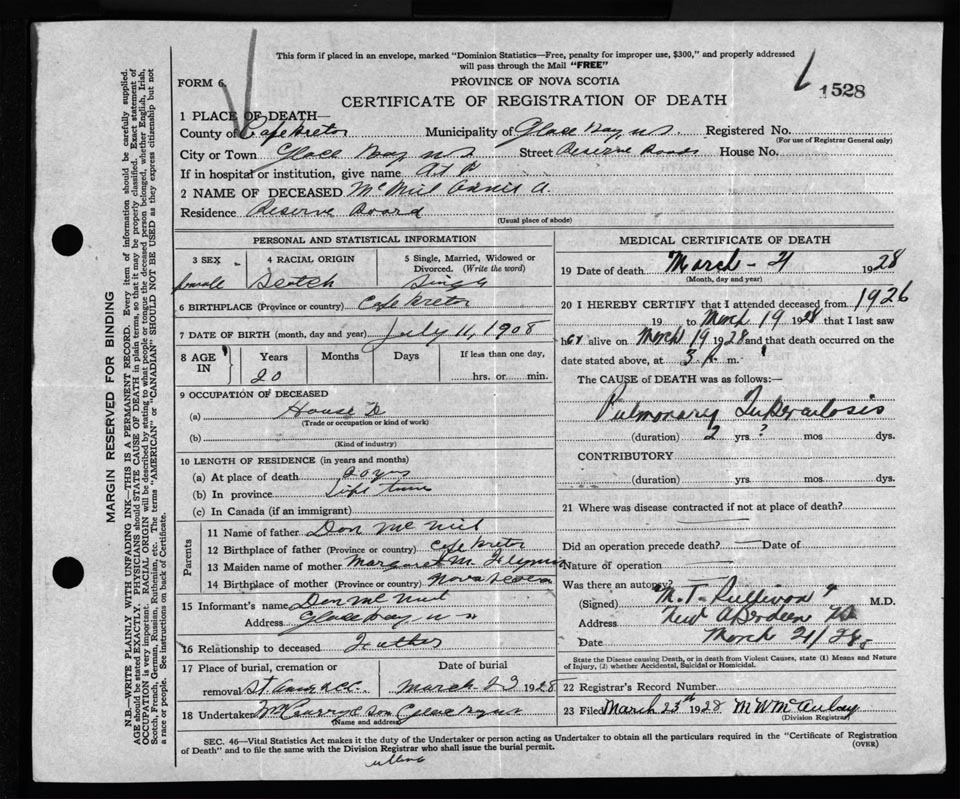 This form if placed in an envelope, marked "Dominion Statistics—Free, penalty for improper use, $300," and properly addressed
will pass through the Mail "FREE"
FORM 6. PROVINCE OF NOVA SCOTIA
1528
CERTIFICATE OF REGISTRATION OF DEATH
1 PLACE OF DEATH—
County of Cape Breton Municipality of Glace Bay NS. Registered No.
(For use of Registrar General only)
City or Town Glace Bay NS Street Reserve Road House No.
If in hospital or institution, give name At
2 NAME OF DECEASED McNeil A.
Residence Reserve Road
(Usual place of abode)
PERSONAL AND STATISTICAL INFORMATION
3 SEX 4 RACIAL ORIGIN 5 Single, Married, Widowed or
Divorced. (Write the word)
female Scotch Single
6 BIRTHPLACE (Province or country) Cape Breton
7 DATE OF BIRTH (month, day and year) July 11, 1908
8 AGE IN Years Months Days If less than one day,
20 hrs. or min.
9 OCCUPATION OF DECEASED
(a) House D
(Trade or occupation or kind of work)
(b)
(Kind of industry)
10 LENGTH OF RESIDENCE (in years and months)
(a) At place of death 20 yrs
(b) In province Life time
(c) In Canada (if an immigrant)
Parents
11 Name of father Don McNeil
12 Birthplace of father (Province or country) Cape Breton
13 Maiden name of mother Margaret M.
14 Birthplace of mother (Province or country) Nova Scotia
15 Informant's name Don McNeil
Address Glace Bay NS
16 Relationship to deceased Father
17 Place of burial, cremation or Date of burial
removal St. March 23 1928
18 Undertaker & Son Glace Bay NS
(Name and address)
MEDICAL CERTIFICATE OF DEATH
19 Date of death March - 21 1928
(Month, day and year)
20 I HEREBY CERTIFY that I attended deceased from 1926
19 to March 19 1928 that I last saw
her alive on March 19 1928 and that death occurred on the
date stated above, at 3 m.
The CAUSE of DEATH was as follows:—
Pulmonary Tuberculosis
(duration) 2 yrs. ? mos dys.
CONTRIBUTORY
(duration) yrs. mos dys.
21 Where was disease contracted if not at place of death?
Did an operation precede death? Date of
Nature of operation
Was there an autopsy?
(Signed) M. T. Sullivan M.D.
Address New Aberdeen NS
Date March 21/28
State the Disease causing Death, or in death from Violent Causes, state (1) Means and Nature
of Injury, (2) whether Accidental, Suicidal or Homicidal.
22 Registrar's Record Number
23 Filed March 25th 1928 M W McAulay
(Division Registrar)
SEC. 46—Vital Statistics Act makes it the duty of the Undertaker or person acting as Undertaker to obtain all the particulars required in the "Certificate of Registration
of Death" and to file the same with the Division Registrar who shall issue the burial permit.
(OVER)
MARGIN RESERVED FOR BINDING
N.B.—WRITE PLAINLY WITH UNFADING INK—THIS IS A PERMANENT RECORD. Every item of information should be carefully supplied.
AGE should be stated EXACTLY. PHYSICIANS should STATE CAUSE OF DEATH in plain terms, so that it may be properly classified. Exact statement of
OCCUPATION is very important. RACIAL ORIGIN will be described by stating to what people or tongue the deceased person belonged, whether English, Irish,
Scotch, French, German, Russian, Ruthenian, etc. The terms "AMERICAN" or "CANADIAN" SHOULD NOT BE USED as they express citizenship but not
a race or people. See instructions on back of Certificate.